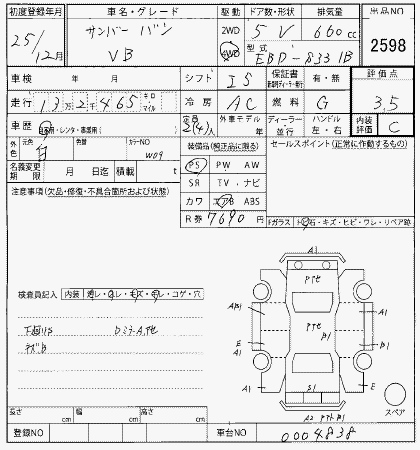 初度登録年月 車名・グレード 駆動 ドア数・形状 排気量 出品NO
25/12月 サンバー バン VB 2WD 4WD 5 V 660cc 2598
型式 EBD-
車検 年 月 シフト IS 保証書 有・無 評価点
走行 13万2千465 キロ・マイル 冷房 AC 燃料 G 3.5
車歴 自家用・レンタ・事業用( ) 定員 2(4)人 外車モデル 年 ディーラー・並行 ハンドル 左・右 内装評価 C
外色 元色 白 色替 カラーNO W09 装備品(純正品に限る) セールスポイント(正常に作動するもの)
名義変更期限 月 日迄 積載 t PS PW AW
注意事項(欠品・修復・不具合箇所および状態) SR TV ナビ
カワ エアB ABS
R券 7690 Fガラス 石・キズ・ヒビ・ワレ・リペア跡
検査員記入 内装 コゲ・穴
A1
A1
A1
E
A1
A1
B1
B1
E
A1
S1
A2
スペア
長さ cm 幅 cm 高さ cm
登録NO 車台NO 0004838